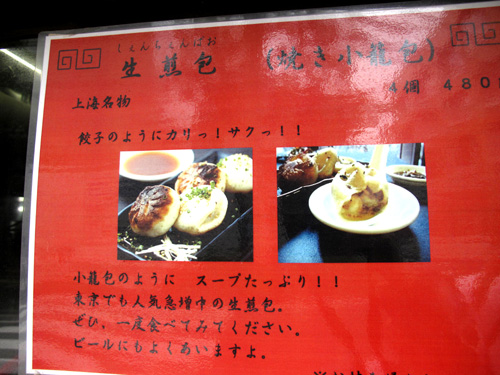 しぇんちぇんぱお
生煎包 (焼き小龍包)
4個 480
上海名物
餃子のようにカリっ！サクっ！！
小龍包のように スープたっぷり！！
東京でも人気急増中の生煎包。
ぜひ、一度食べてみてください。
ビールにもよくあいますよ。